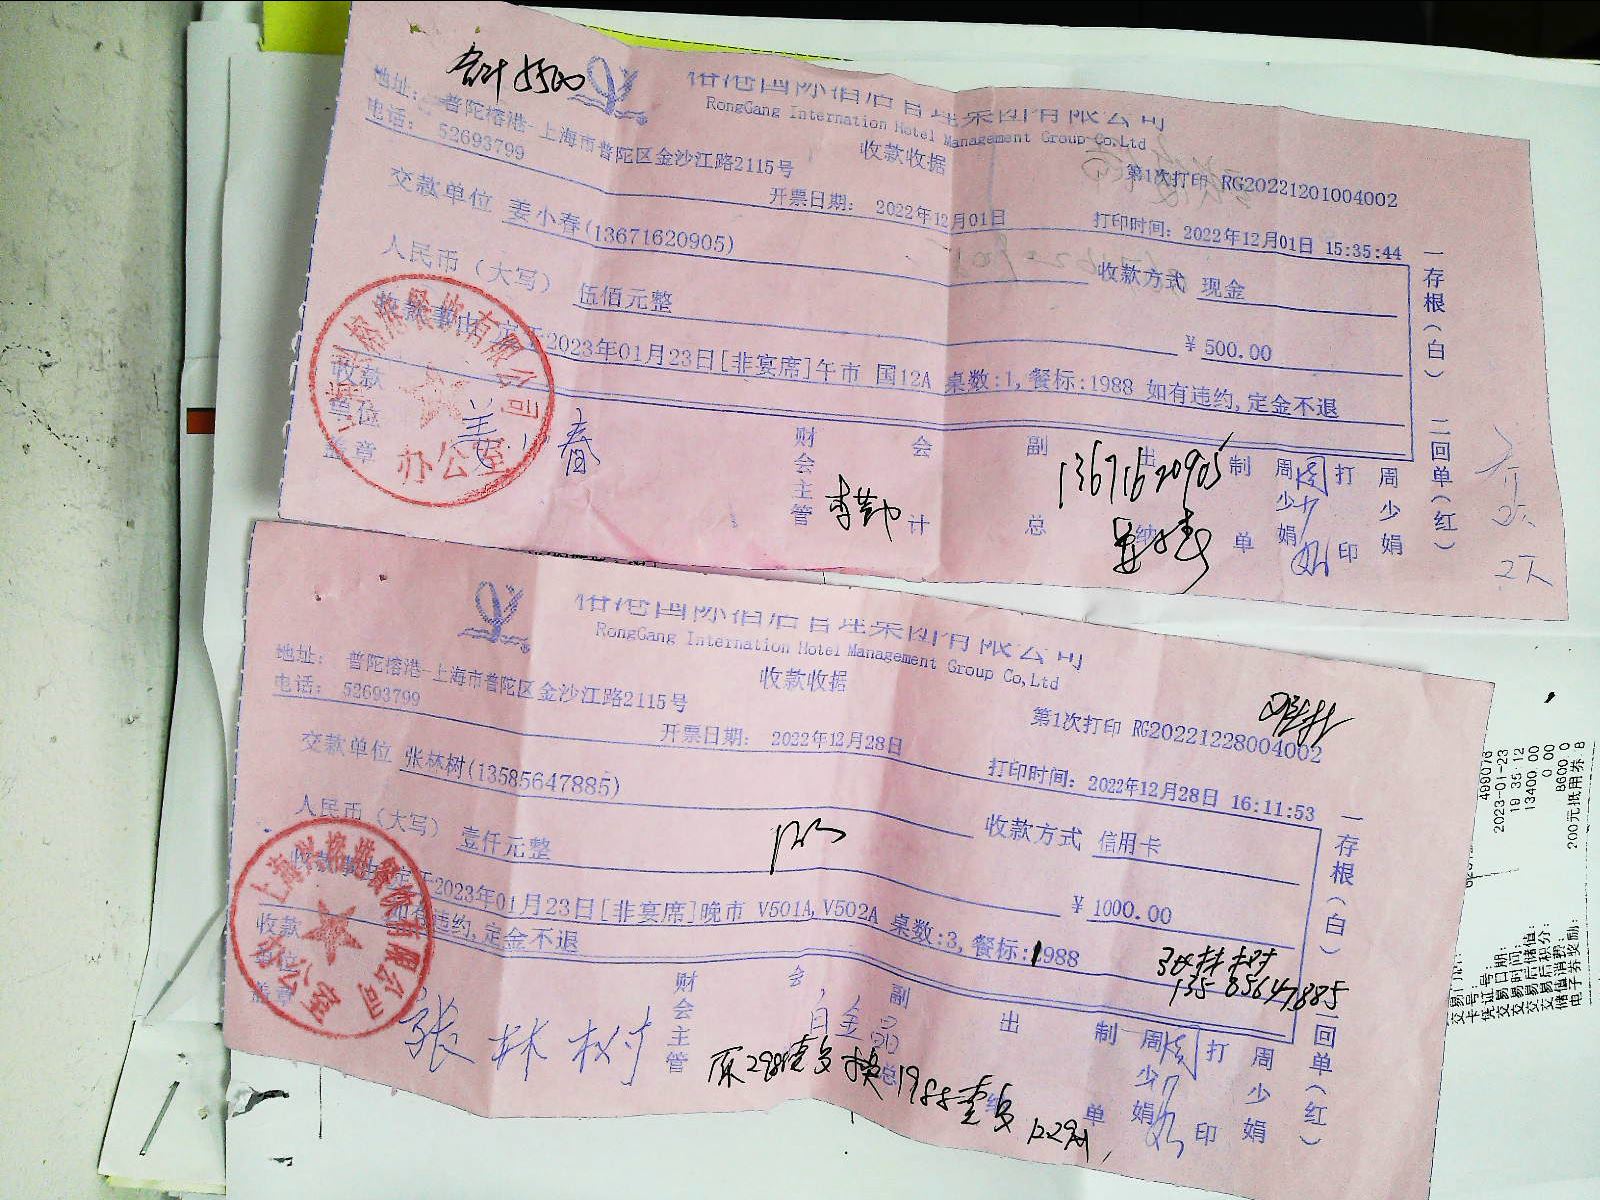 合计5500
榕港国际酒店管理集团有限公司
RongGang Internation Hotel Management Group Co,Ltd
收款收据
地址: 普陀榕港-上海市普陀区金沙江路2115号
电话: 52693799
第1次打印 RG20221201004002
开票日期: 2022年12月01日
打印时间: 2022年12月01日 15:35:44
交款单位 姜小春(13671620905)
收款方式 现金
人民币(大写) 伍佰元整
¥500.00
收款事由 定于2023年01月23日[非宴席]午市 国12A 桌数:1,餐标:1988 如有违约,定金不退
收款单位盖章
办公室
财会主管
会计
副总
出纳
制单 周少娟
打印 周少娟
一存根(白) 二回单(红)
13671620905
2天
榕港国际酒店管理集团有限公司
RongGang Internation Hotel Management Group Co,Ltd
收款收据
地址: 普陀榕港-上海市普陀区金沙江路2115号
电话: 52693799
第1次打印 RG20221228004002
开票日期: 2022年12月28日
打印时间: 2022年12月28日 16:11:53
交款单位 张林树(13585647885)
收款方式 信用卡
人民币(大写) 壹仟元整
¥1000.00
收款事由 定于2023年01月23日[非宴席]晚市 V501A,V502A 桌数:3,餐标:1988
如有违约,定金不退
张林树
13585647885
收款单位盖章
张林树
财会主管
会
副总
出纳
制单 周少娟
打印 周少娟
一存根(白) 二回单(红)
499076
2023-01-23
19:35:12
13400.00
0.00
8600.0
200元抵用券 8
卡号:
凭证号:
交易日期:
交易时间:
交易后储值:
交易后积分:
储值消费:
电子券奖励: